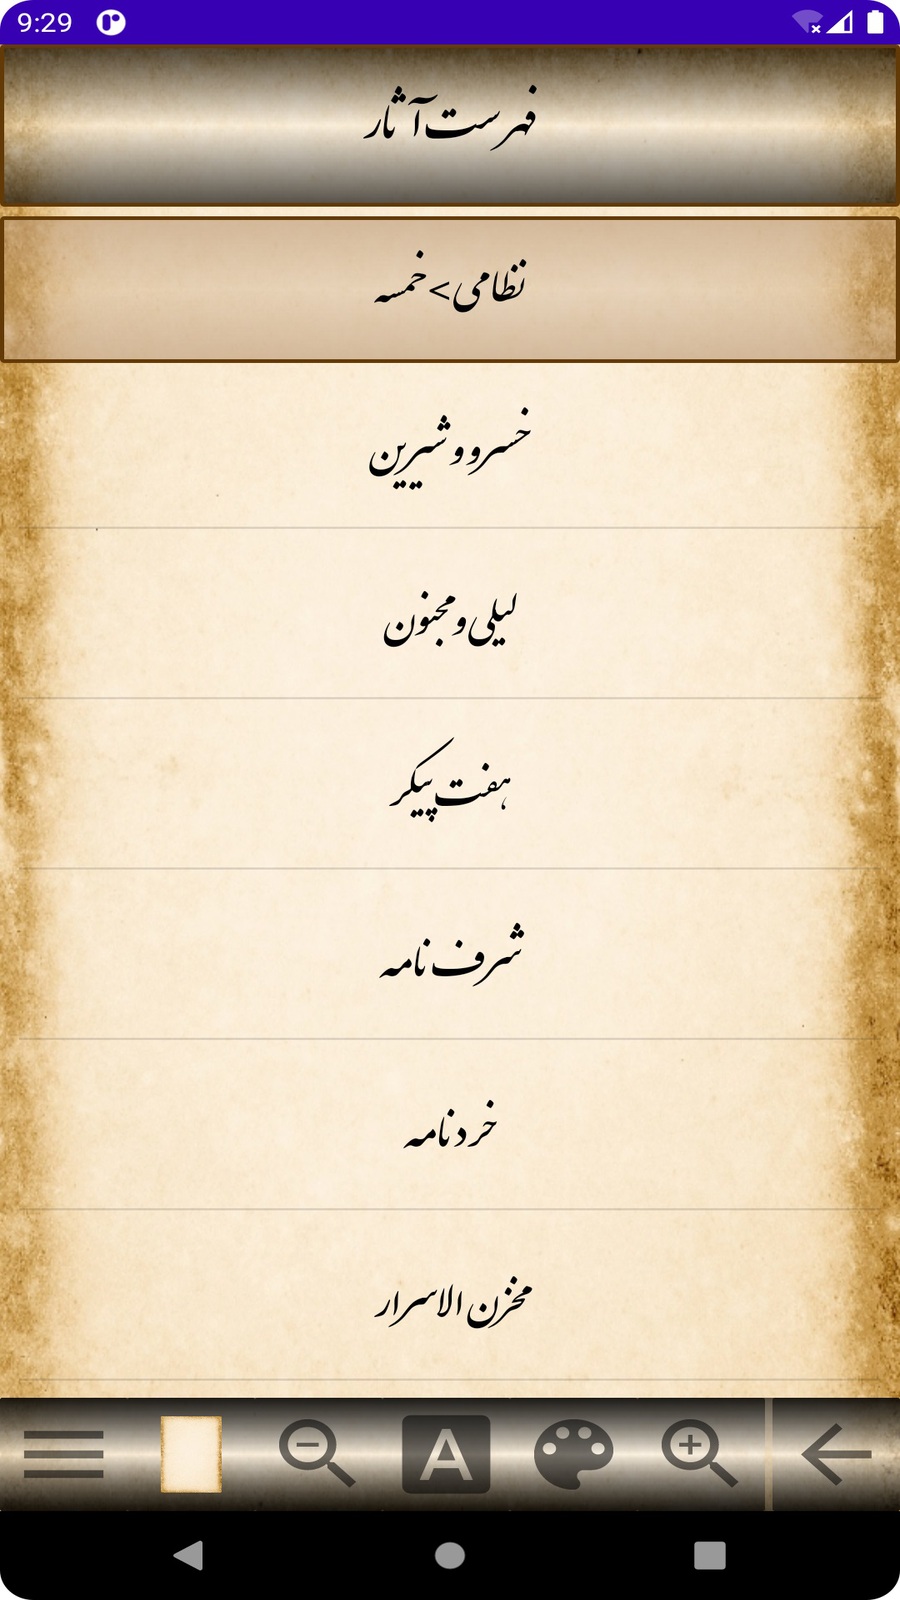 9:29
فهرست آثار
نظامی>خمسه
خسرو و شیرین
لیلی و مجنون
هفت پیکر
شرف نامه
خردنامه
مخزن الاسرار
A